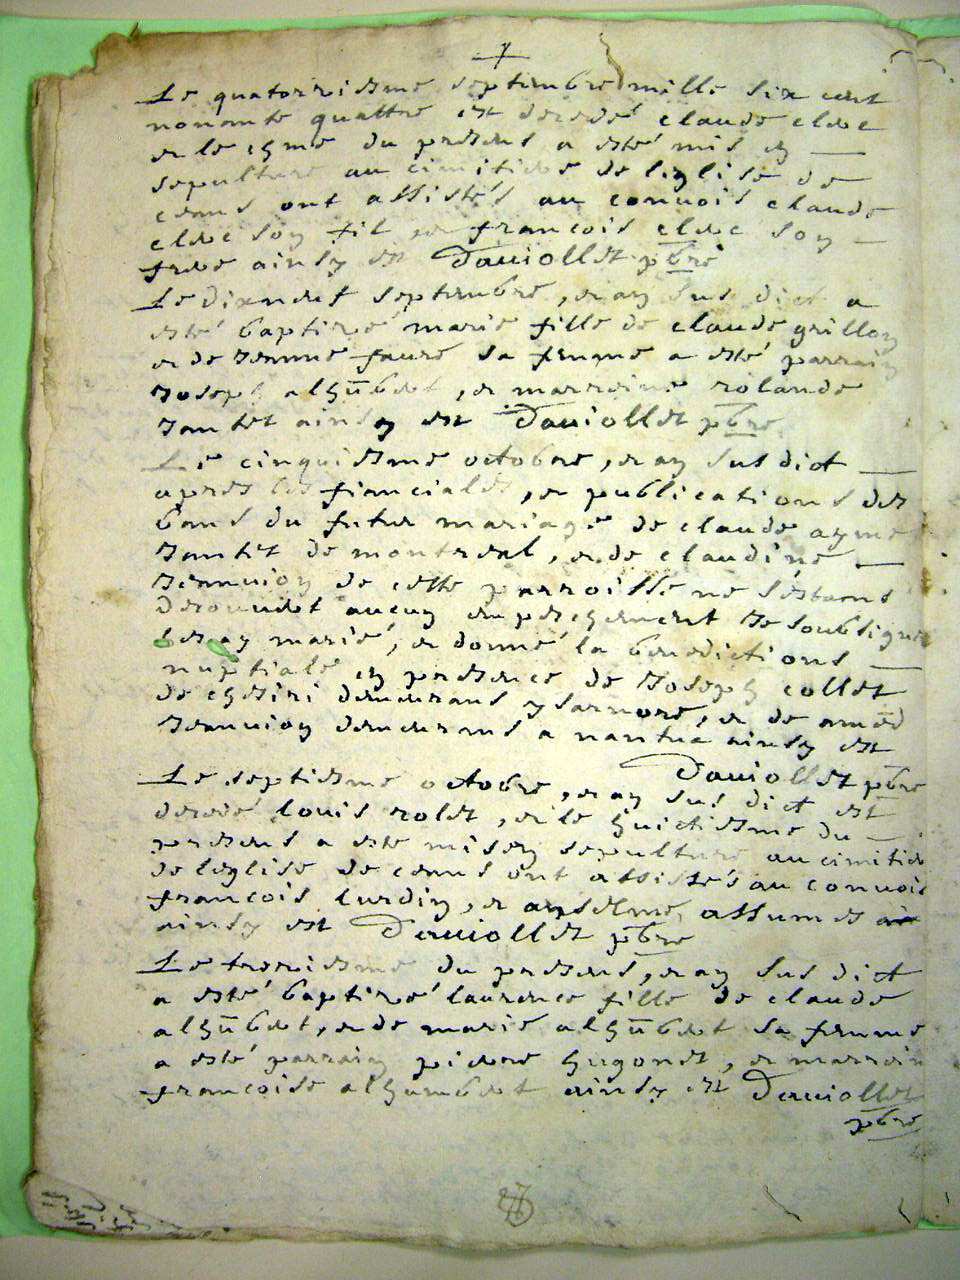 Le quatorziesme septembre mille six cent
nonante quattre est decedé claude clerc
et le 15me du present a esté mis en
sepulture au cimitiere de leglise de
ceans ont assistés au convois claude
clerc son fil et francois clerc son
frere ainsy est Daviollet pbre
Le dixneuf septembre, et an sus dict a
esté baptizé marie fille de claude grillon
et de Jeanne faure sa femme a esté parrain
Joseph alhūbert, et marreine rolande
Jantet ainsy est Daviollet pbre
Le cinquiesme octobre, et an sus dict
apres les fiancialles, et publications des
bans du futur mariage de claude ayme
Jantet de montreal, et de claudine
Jeannion de cette parroisse ne s'estant
decouvert aucun empeschement Je soubsigné
les ay marié, et donné la benedictions
nuptiale en presence de Joseph collet
de demeurant, et de amed
Jeannion demeurant a nantua ainsy est
Daviollet pbre
Le septiesme octobre, et an sus dict est
decedé louis rolet, et le huictiesme du
present a esté mis en sepulture au cimitiere
de leglise de ceans ont assistés au convois
francois lurdin, et anselme
ainsy est Daviollet pbre
Le treziesme du present, et an sus dict
a esté baptizé laurence fille de claude
alhūbert, et de marie alhūbert sa femme
a esté parrain pierre hugonet, et marrein
francoise alhumbert ainsy est Daviollet
pbre